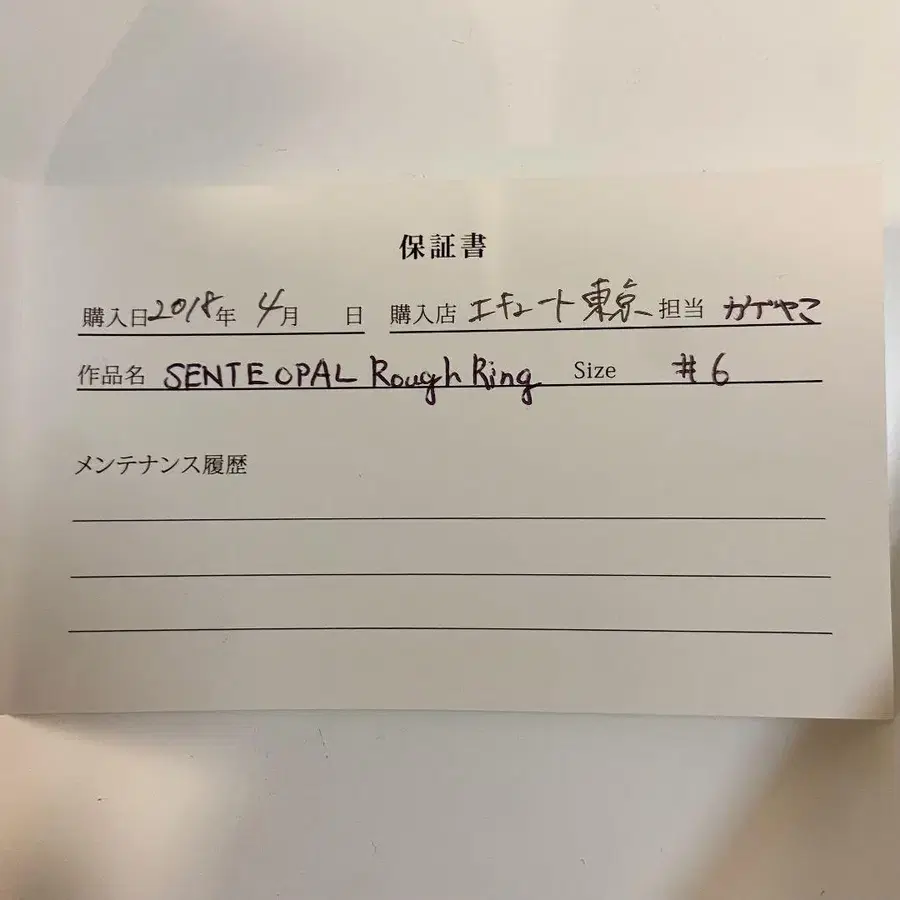 保証書
購入日2018年 4月 日 購入店 エキュート東京 担当 カゲヤマ
作品名 SENTE OPAL Rough Ring Size #6
メンテナンス履歴